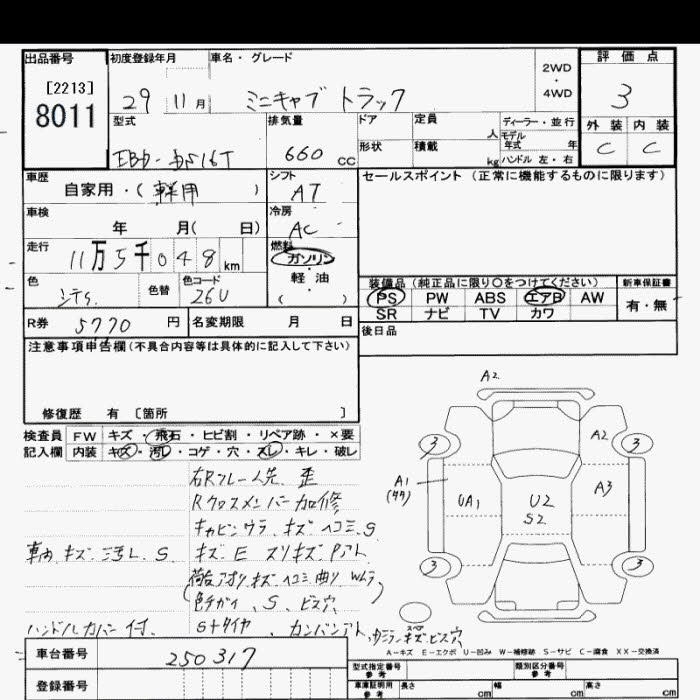 出品番号 初度登録年月 車名・グレード 評価点
[2213]
8011
29 11月 ミニキャブ トラック
2WD
・
4WD
3
外装 内装
C C
型式 排気量 ドア 定員 人 ディーラー・並行
モデル年式 年
形状 積載 kg ハンドル 左・右
660 CC
車歴 シフト セールスポイント (正常に機能するものに限ります)
自家用・(軽用) AT
車検 冷房
年 月( 日) AC
走行 燃料
11万5千048km ガソリン
・
軽油
( )
色 色替 色コード
26U
装備品(純正品に限り〇をつけてください) 新車保証書
PS PW ABS エアB AW 有・無
SR ナビ TV カワ
R券 5770 円 名変期限 月 日 後日品
注意事項申告欄(不具合内容等は具体的に記入して下さい)
修復歴 有 [箇所 ]
検査員 FW キズ・飛石・ヒビ割・リペア跡・×要
記入欄 内装 キズ・汚レ・コゲ・穴・スレ・キレ・破レ
A2
3 A2 3
A1 UA1 U2 A3
S2
3 3
右Rフレーム先 歪
Rクロスメンバー加修
キャビンウラ キズ ヘコミ S
車内 キズ 汚レ S
ハンドルカバー付、 Sタイヤ
A-キズ E-エクボ U-凹み W-補修跡 S-サビ C-腐食 XX-交換済
車台番号 250317
登録番号
型式指定番号 参考 類別区分番号 参考
車庫証明用 参考 長さ cm 幅 cm 高さ cm